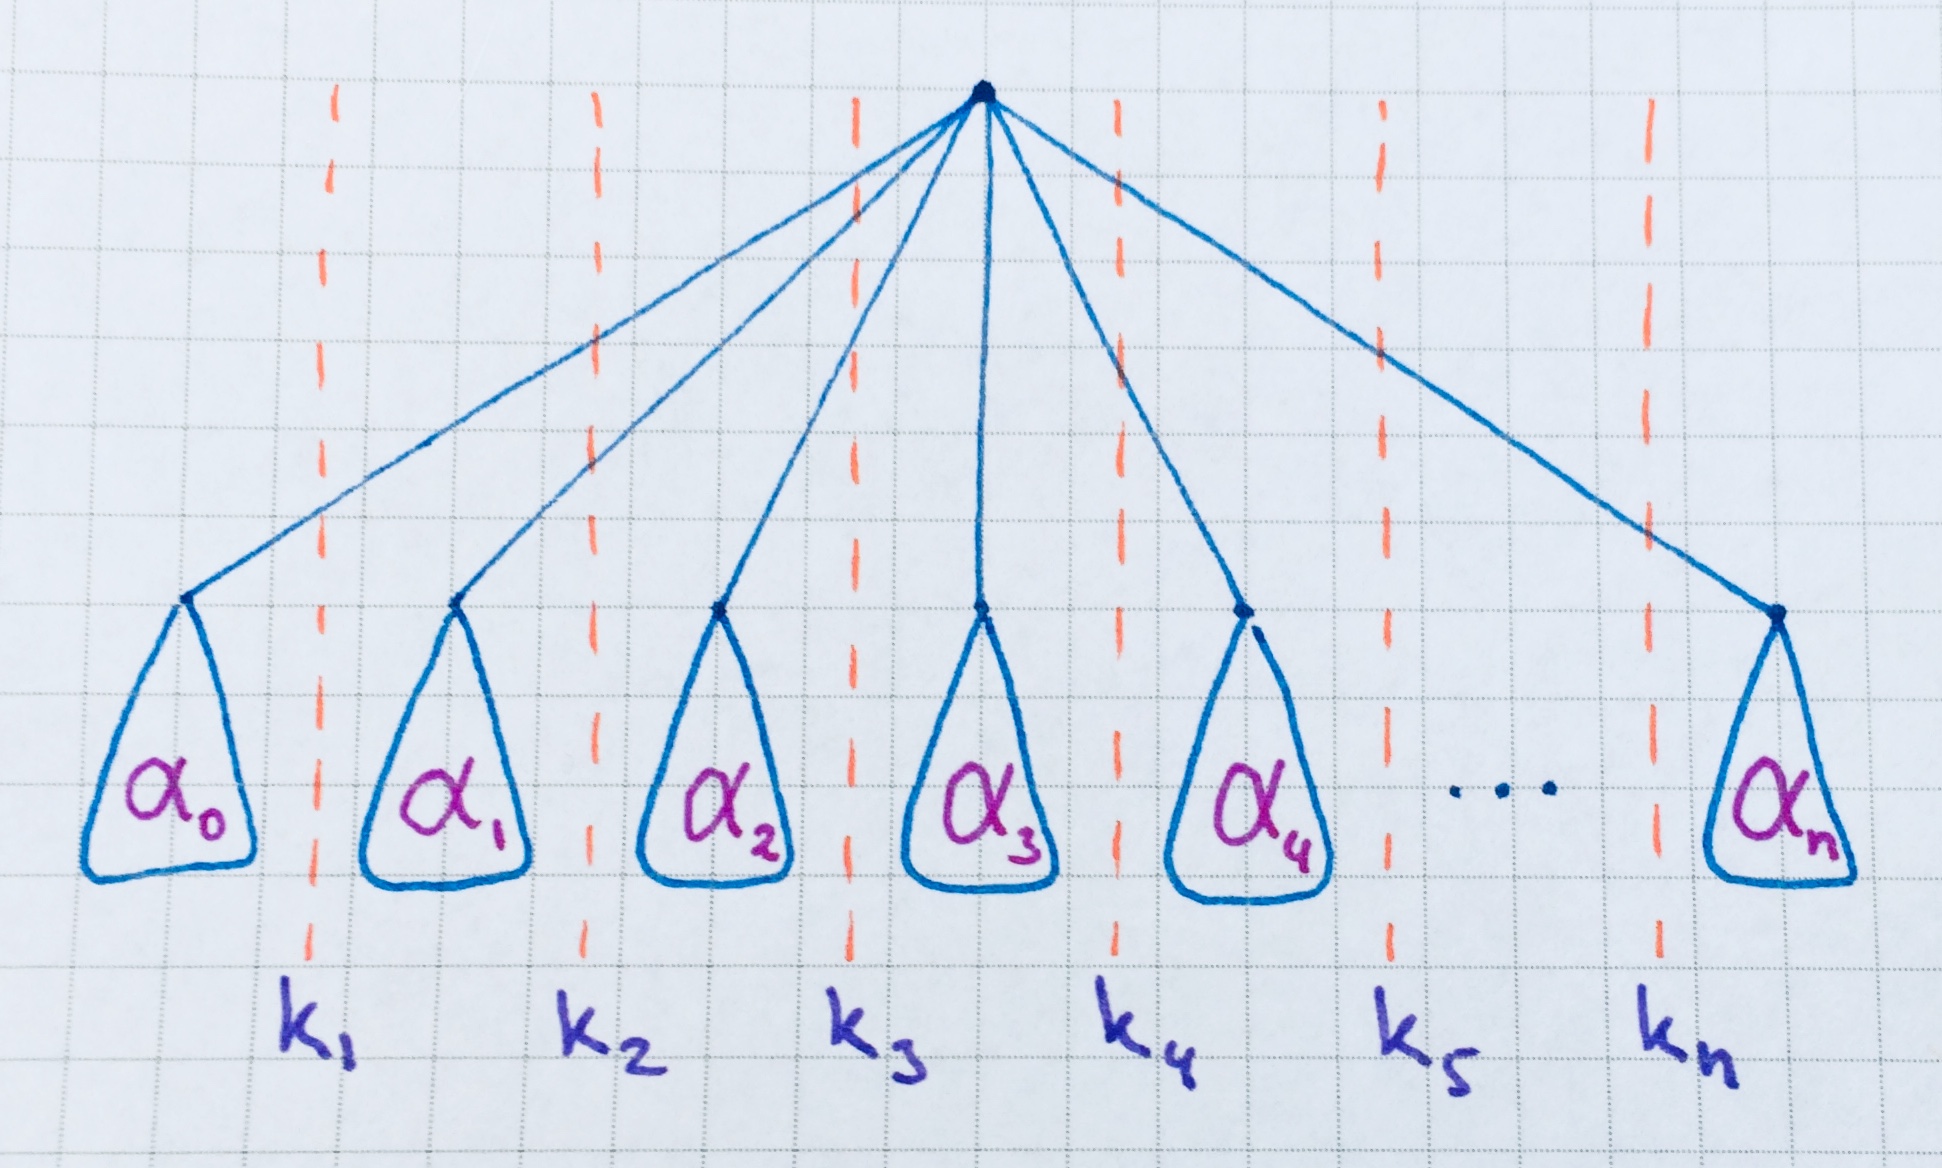 α₀ α₁ α₂ α₃ α₄ ... αₙ
k₁ k₂ k₃ k₄ k₅ kₙ